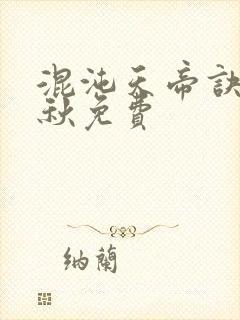 混沌天帝訣
秋免費
納蘭